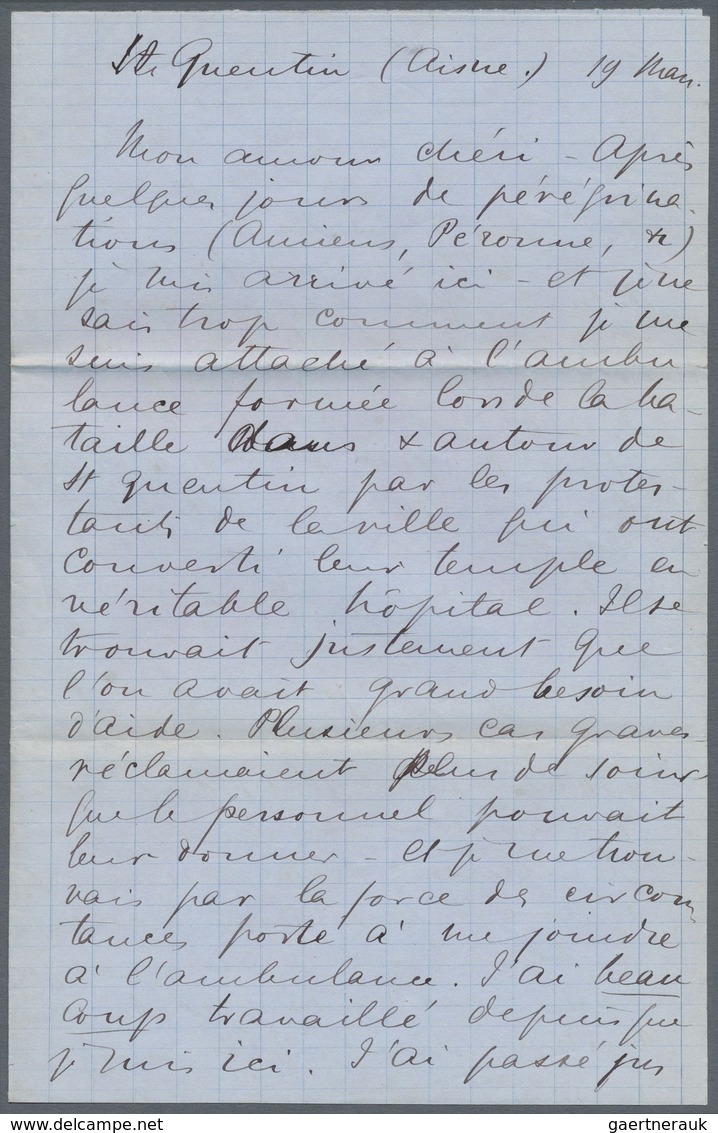 St Quentin (Aisne.) 19 Mars.
Mon amour chéri - Après
quelques jours de pérégrina-
tions (Amiens, Péronne, &)
je suis arrivé ici - et je ne
sais trop comment je me
suis attaché à l'ambu
lance formée lors de la ba-
taille dans & autour de
St Quentin par les protes-
tants de la ville qui ont
converti leur temple en
véritable hôpital. Il se
trouvait justement que
l'on avait grand besoin
d'aide. Plusieurs cas graves
réclamaient plus de soins
que le personnel pouvait
leur donner - et je me trou-
vais par la force des circons
tances porté à me joindre
à l'ambulance. J'ai beau
coup travaillé depuis que
je suis ici. J'ai passé jus
gaertnerauk